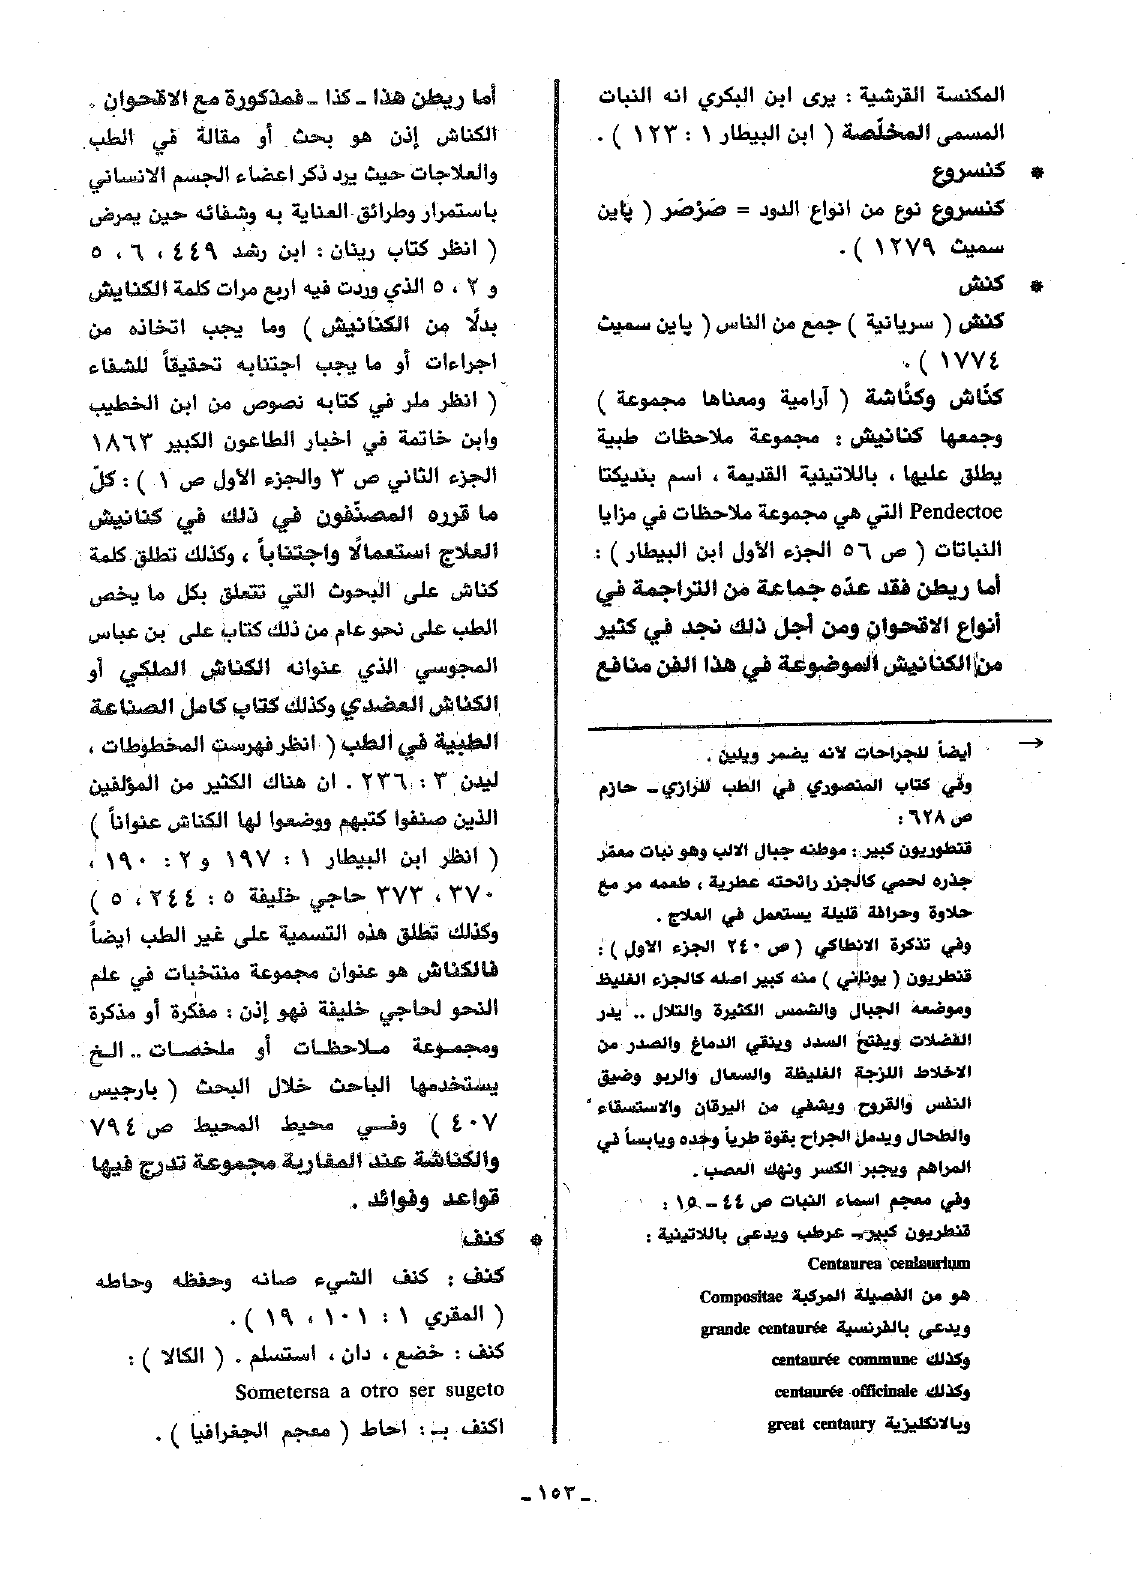 المكنسة القرشية : يرى ابن البكري انه النبات
المسمى المخلّصة ( ابن البيطار ١ : ١٢٣ ) .
* كنسروع
كنسروع نوع من انواع الدود = صَرْصَر ( پاين
سميث ١٢٧٩ ) .
* كنش
كنش ( سريانية ) جمع من الناس ( پاين سميث
١٧٧٤ ) .
كنّاش وكنَّاشة ( آرامية ومعناها مجموعة )
وجمعها كنانيش : مجموعة ملاحظات طبية
يطلق عليها ، باللاتينية القديمة ، اسم بنديكتا
Pendectoe التي هي مجموعة ملاحظات في مزايا
النباتات ( ص ٥٦ الجزء الأول ابن البيطار ) :
أما ريطن فقد عدّه جماعة من التراجمة في
أنواع الاقحوان ومن أجل ذلك نجد في كثير
من الكنانيش الموضوعة في هذا الفن منافع
→ أيضاً للجراحات لانه يضمر ويلين .
وفي كتاب المنصوري في الطب للرازي - حازم
ص ٦٢٨ :
قنطوريون كبير : موطنه جبال الالب وهو نبات معمّر
جذره لحمي كالجزر رائحته عطرية ، طعمه مر مع
حلاوة وحرافة قليلة يستعمل في العلاج .
وفي تذكرة الانطاكي ( ص ٢٤٠ الجزء الاول ) :
قنطريون ( يوناني ) منه كبير اصله كالجزء الغليظ
وموضعه الجبال والشمس الكثيرة والتلال .. يدر
الفضلات ويفتح السدد وينقي الدماغ والصدر من
الاخلاط اللزجة الغليظة والسعال والربو وضيق
النفس والقروح ويشفي من اليرقان والاستسقاء
والطحال ويدمل الجراح بقوة طرياً وحده ويابساً في
المراهم ويجبر الكسر ونهك العصب .
وفي معجم اسماء النبات ص ٤٤ - ١٥ :
قنطريون كبير - عرطب ويدعى باللاتينية :
Centaurea centaurium
هو من الفصيلة المركبة Compositae
ويدعى بالفرنسية grande centaurée
وكذلك centaurée commune
وكذلك centaurée officinale
وبالانكليزية great centaury
أما ريطن هذا - كذا - فمذكورة مع الاقحوان .
الكناش إذن هو بحث أو مقالة في الطب
والعلاجات حيث يرد ذكر اعضاء الجسم الانساني
باستمرار وطرائق العناية به وشفائه حين يمرض
( انظر كتاب رينان : ابن رشد ٤٤٩ ، ٦ ، ٥
و ٢ ، ٥ الذي وردت فيه اربع مرات كلمة الكنايش
بدلًا من الكنانيش ) وما يجب اتخاذه من
اجراءات أو ما يجب اجتنابه تحقيقاً للشفاء
( انظر ملر في كتابه نصوص من ابن الخطيب
وابن خاتمة في اخبار الطاعون الكبير ١٨٦٣
الجزء الثاني ص ٣ والجزء الأول ص ١ ) : كلّ
ما قرره المصنّفون في ذلك في كنانيش
العلاج استعمالًا واجتناباً ، وكذلك تطلق كلمة
كناش على البحوث التي تتعلق بكل ما يخص
الطب على نحو عام من ذلك كتاب على بن عباس
المجوسي الذي عنوانه الكناش الملكي أو
الكناش العضدي وكذلك كتاب كامل الصناعة
الطبية في الطب ( انظر فهرست المخطوطات ،
ليدن ٣ : ٢٣٦ . ان هناك الكثير من المؤلفين
الذين صنفوا كتبهم ووضعوا لها الكناش عنواناً )
( انظر ابن البيطار ١ : ١٩٧ و ٢ : ١٩٠ ،
٣٧٠ ، ٣٧٣ حاجي خليفة ٥ : ٢٤٤ ، ٥ )
وكذلك تطلق هذه التسمية على غير الطب ايضاً
فالكناش هو عنوان مجموعة منتخبات في علم
النحو لحاجي خليفة فهو إذن : مفكرة أو مذكرة
ومجموعة ملاحظات أو ملخصات .. الخ
يستخدمها الباحث خلال البحث ( بارجيس
٤٠٧ ) وفي محيط المحيط ص ٧٩٤
والكناشة عند المغاربة مجموعة تدرج فيها
قواعد وفوائد .
* كنف
كنف : كنف الشيء صانه وحفظه وحاطه
( المقري ١ : ١٠١ ، ١٩ ) .
كنف : خضع ، دان ، استسلم . ( الكالا ) :
Sometersa a otro ser sugeto
اكنف بـ : احاط ( معجم الجغرافيا ) .
- ١٥٣ -